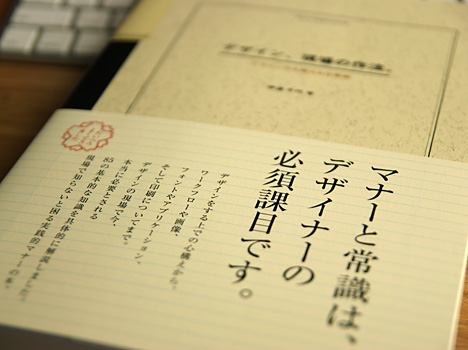 マナーと常識は、
デザイナーの
必須課目です。
デザインをする上での心構えから、
ワークフローや画像、
フォントやアプリケーション、
そして印刷についてまで。
デザインの現場で今、
本当に必要とされる
85の基本的な知識を具体的に解説しました。
現場で知らないと困る実践的マナーの本。